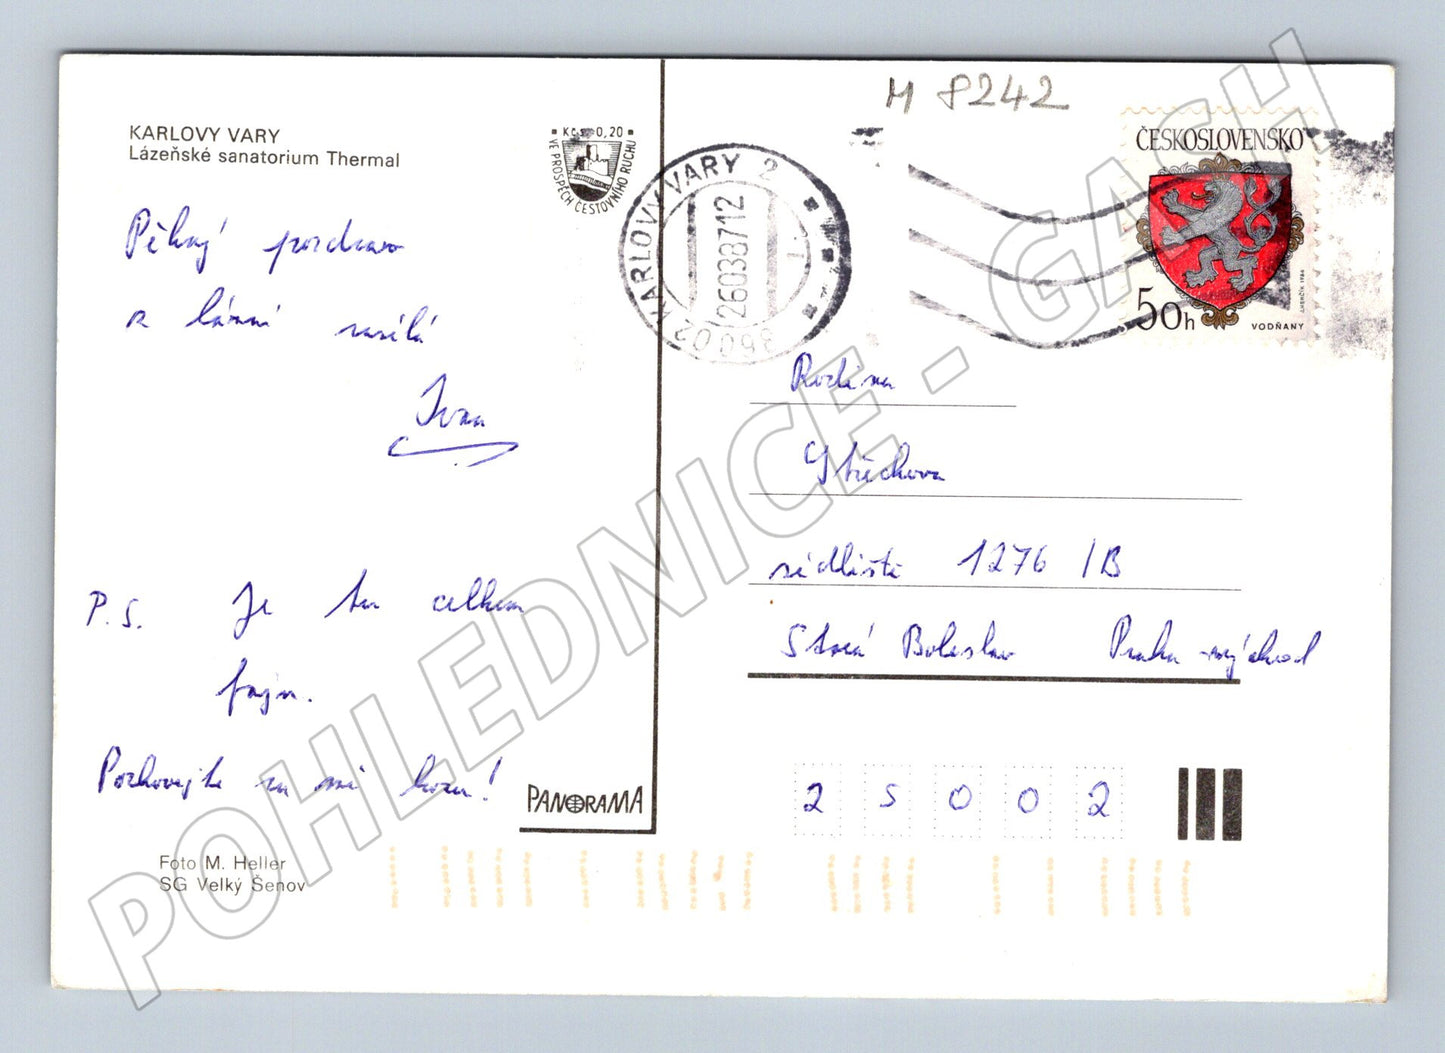 KARLOVY VARY
Lázeňské sanatorium Thermal
Kčs 0,20
VE PROSPĚCH CESTOVNÍHO RUCHU
Pěkný pozdrav
z lázní zasílá
Ivan
P.S. Je tu celkem
fajn.
Pozdravujte
PANORAMA
Foto M. Heller
SG Velký Šenov
M 8242
KARLOVY VARY 2
26038712
360 02
ČESKOSLOVENSKO
50h
VODŇANY
Rodina
sídliště 1276 /B
Stará Boleslav Praha-východ
25002
POHLEDNICE - GASH